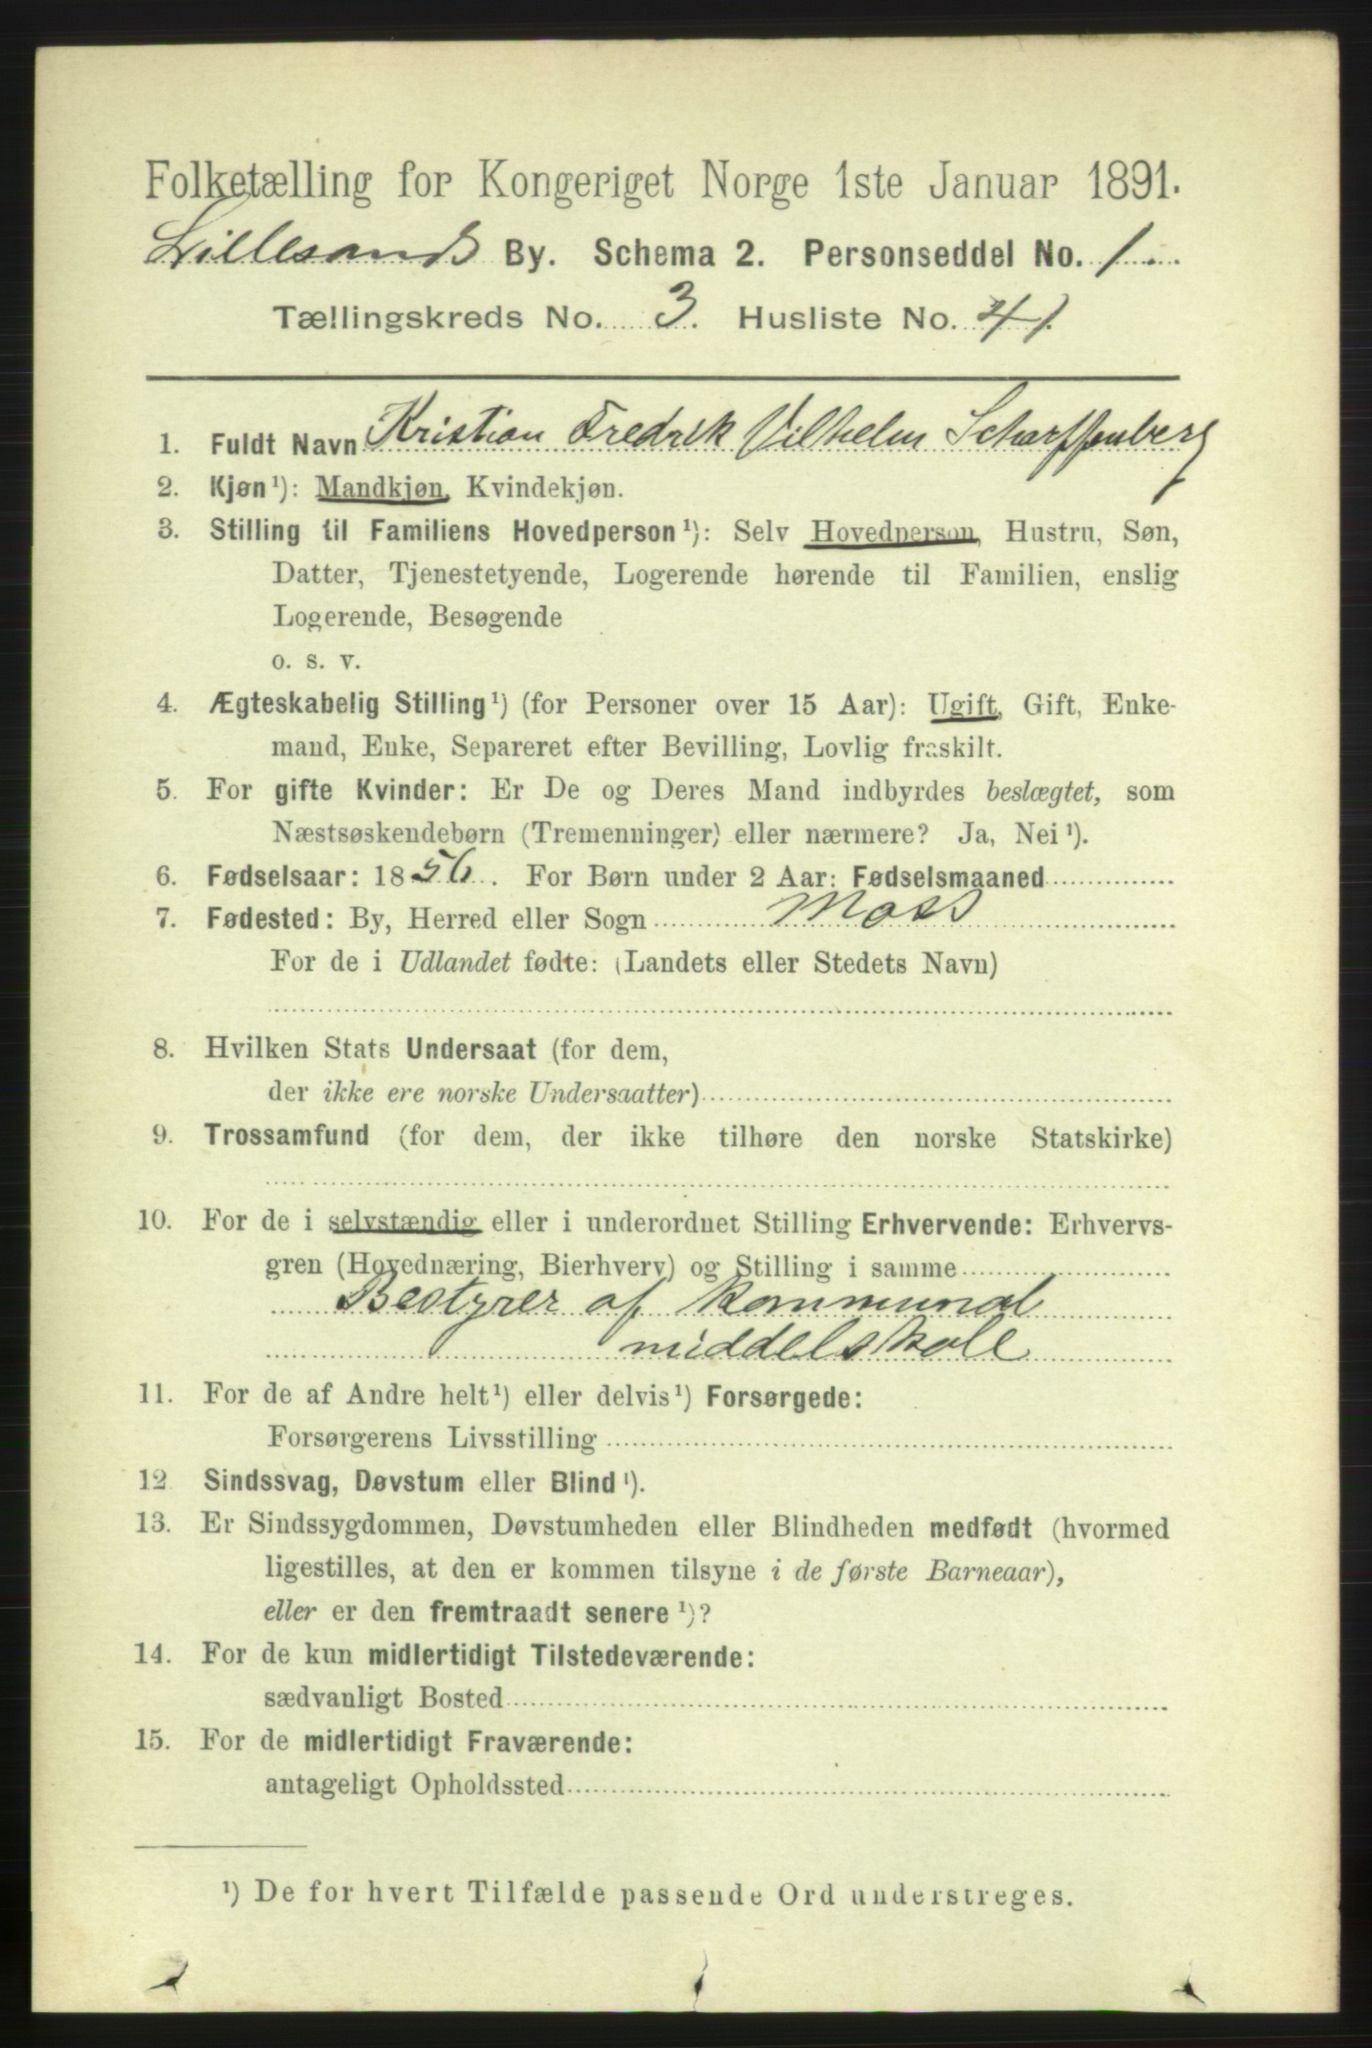 Folketælling for Kongeriget Norge 1ste Januar 1891.
Lillesands By. Schema 2. Personseddel No. 1.
Tællingskreds No. 3. Husliste No. 41.
1. Fuldt Navn Kristian Fredrik Vilhelm Scharffenberg
2. Kjøn¹): Mandkjøn, Kvindekjøn.
3. Stilling til Familiens Hovedperson¹): Selv Hovedperson, Hustru, Søn,
Datter, Tjenestetyende, Logerende hørende til Familien, enslig
Logerende, Besøgende
o. s. v.
4. Ægteskabelig Stilling¹) (for Personer over 15 Aar): Ugift, Gift, Enke-
mand, Enke, Separeret efter Bevilling, Lovlig fraskilt.
5. For gifte Kvinder: Er De og Deres Mand indbyrdes beslægtet, som
Næstsøskendebørn (Tremenninger) eller nærmere? Ja, Nei¹).
6. Fødselsaar: 1856. For Børn under 2 Aar: Fødselsmaaned
7. Fødested: By, Herred eller Sogn Moss
For de i Udlandet fødte: (Landets eller Stedets Navn)
8. Hvilken Stats Undersaat (for dem,
der ikke ere norske Undersaatter)
9. Trossamfund (for dem, der ikke tilhøre den norske Statskirke)
10. For de i selvstændig eller i underordnet Stilling Erhvervende: Erhvervs-
gren (Hovednæring, Bierhverv) og Stilling i samme
Bestyrer af kommunal
middelskole
11. For de af Andre helt¹) eller delvis¹) Forsørgede:
Forsørgerens Livsstilling
12 Sindssvag, Døvstum eller Blind¹).
13. Er Sindssygdommen, Døvstumheden eller Blindheden medfødt (hvormed
ligestilles, at den er kommen tilsyne i de første Barneaar),
eller er den fremtraadt senere¹)?
14. For de kun midlertidigt Tilstedeværende:
sædvanligt Bosted
15. For de midlertidigt Fraværende:
antageligt Opholdssted
¹) De for hvert Tilfælde passende Ord understreges.